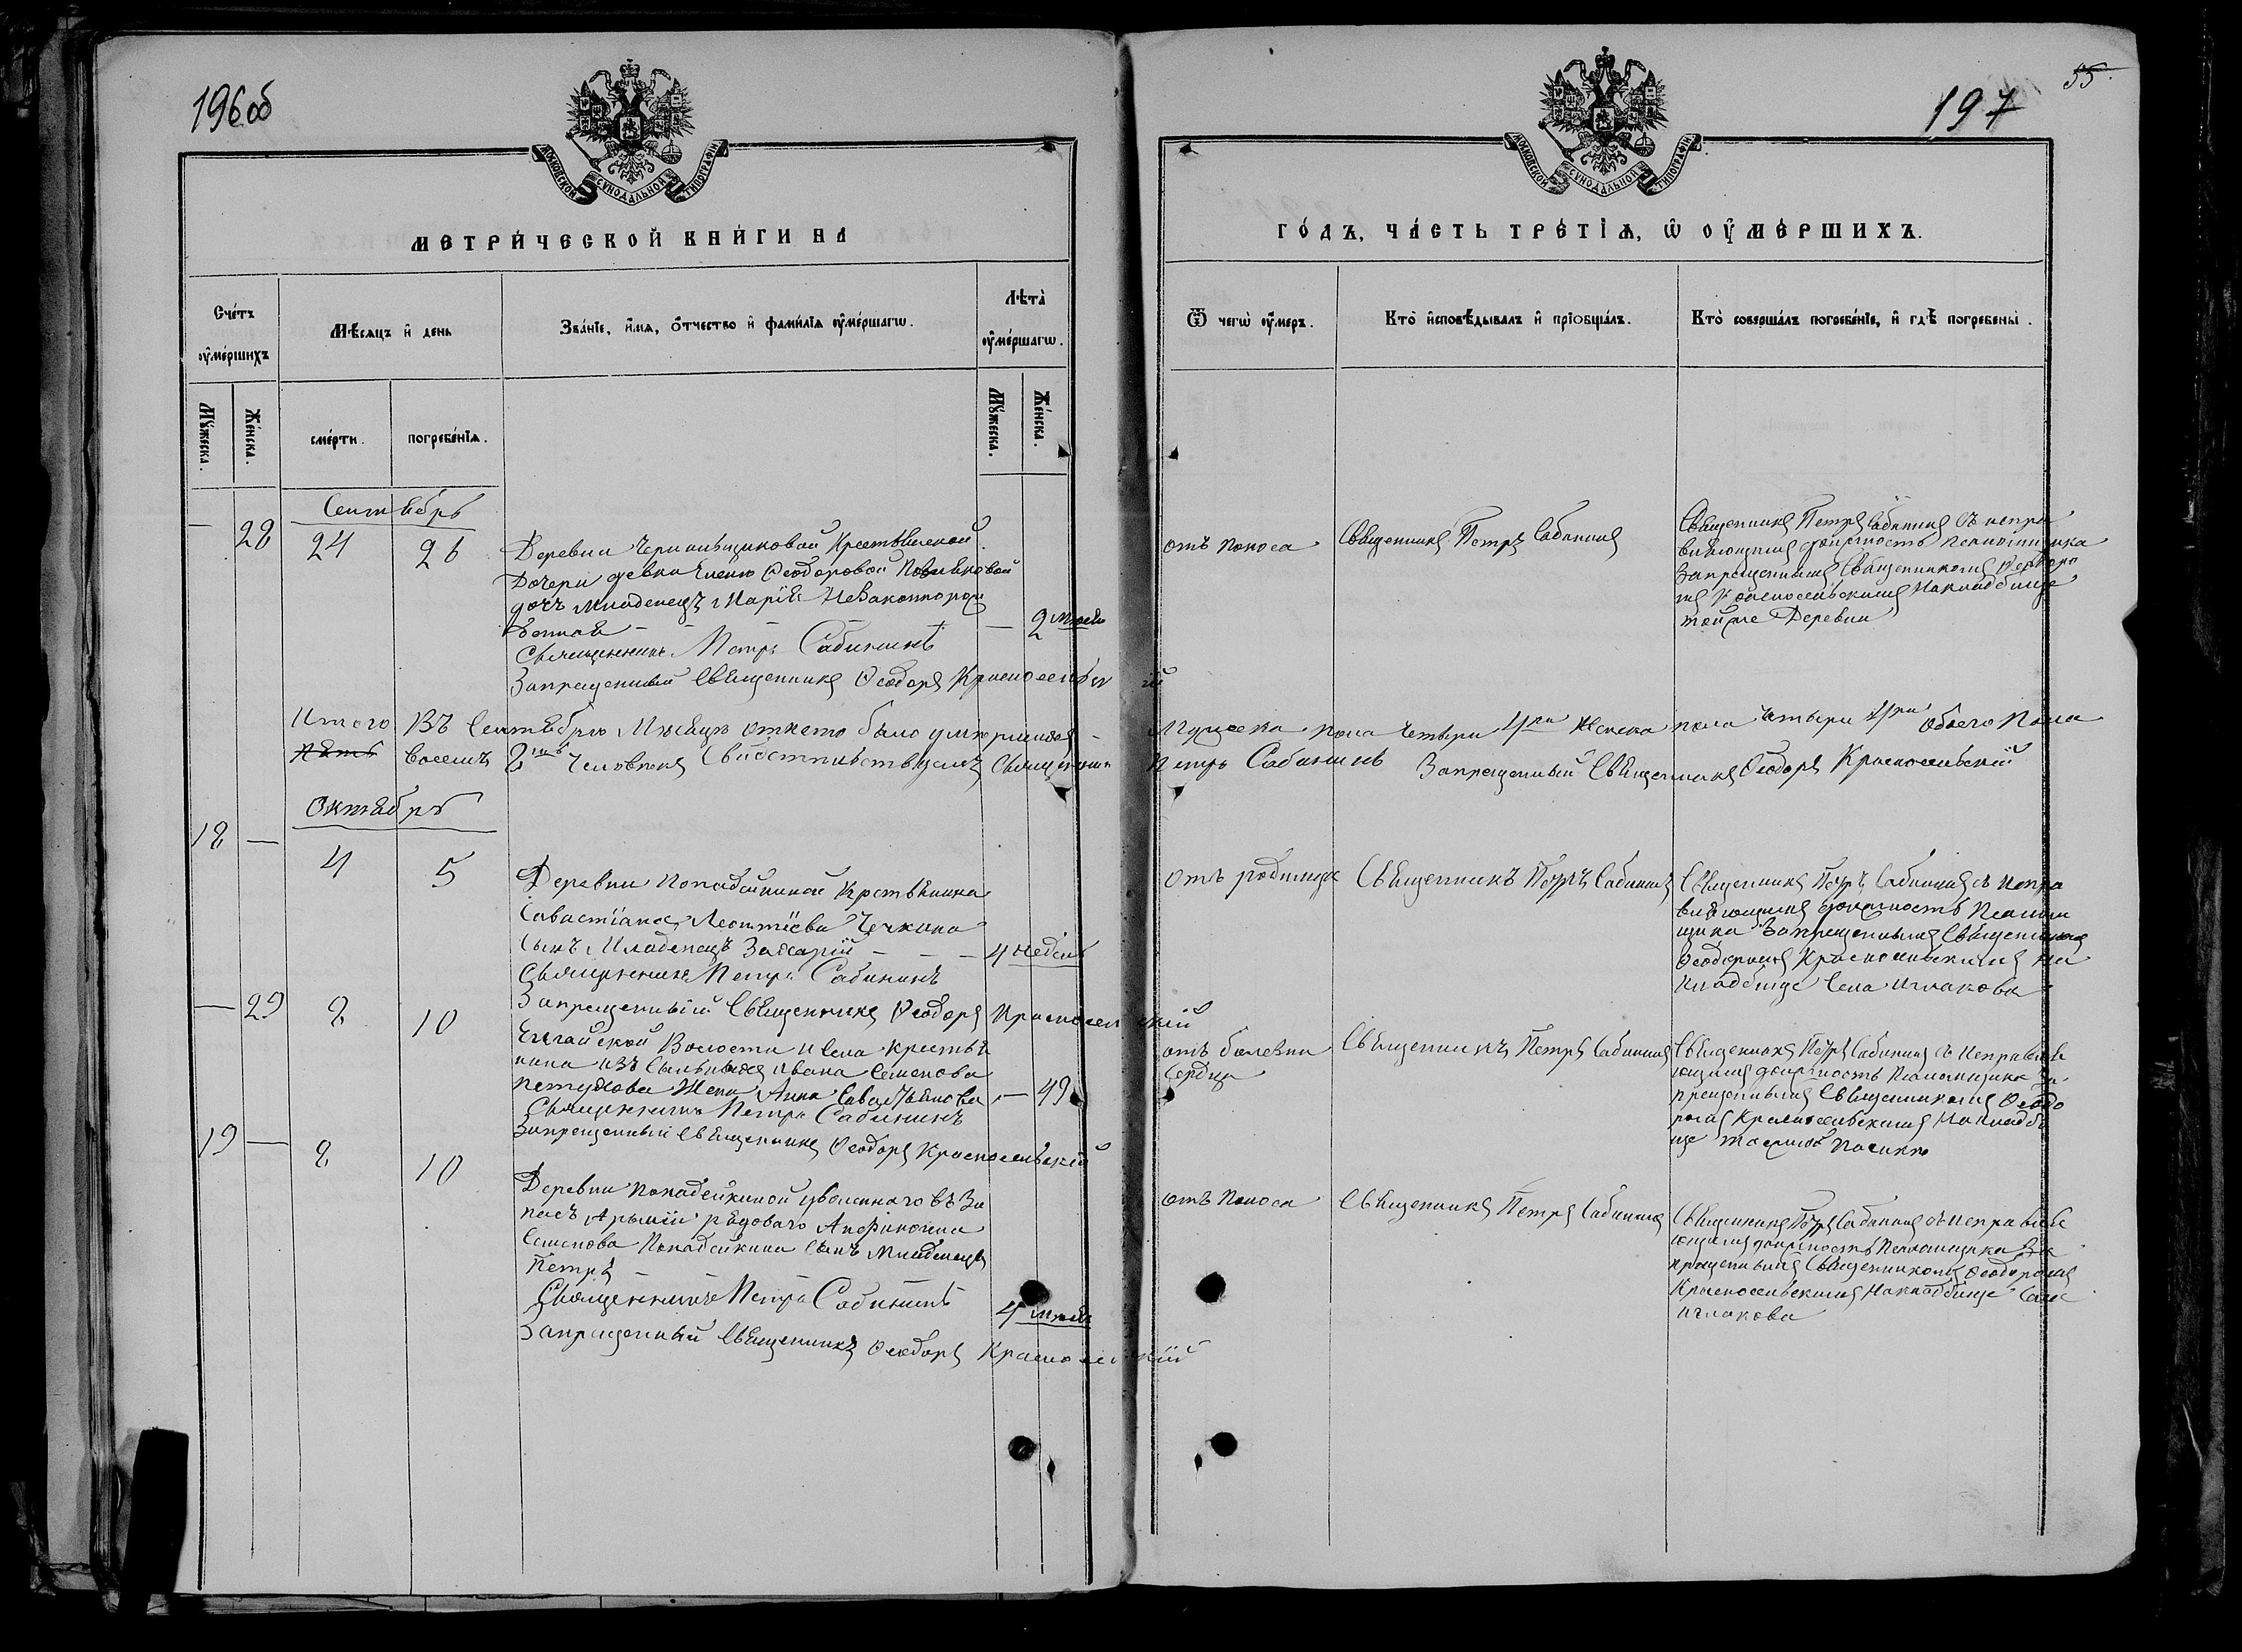 196об
МОСКОВСКОЙ СѴНОДАЛЬНОЙ ТИПОГРАФІИ
МЕТРИ́ЧЕСКОЙ КНИ́ГИ НА
Сче́тъ ᲂу҆ме́ршихъ
Мѣ́сяцъ и҆ день
Зва́нїе, и҆́мя, ѻ҆́тчество и҆ фами́лїѧ ᲂу҆ме́ршагѡ.
Лѣ́та ᲂу҆ме́ршагѡ.
Мꙋ́жеска.
Же́нска.
сме́рти.
погребе́нїѧ.
Мꙋ́жеска.
Же́нска.
Сентябрь
— 28 24 26
Деревни Крестьянской
дочери девки Ѳеодоровой
дочь младенецъ Марія Незаконнорож
денная — — — — 2 мѣся
Священникъ Петръ Сабининъ
Запрещенный Священникъ Ѳеодоръ Красносельскій
Итого Въ Сентябрѣ Мѣсяцѣ было умершихъ
пять восемь 8мь Человѣкъ Священникъ
Октябрь
18 — 4 5
Деревни Попадейкиной Крестьянина
Савастіана Леонтіева
сынъ Младенецъ Захарій — — — 4 недѣль
Священникъ Петръ Сабининъ
Запрещенный Священникъ Ѳеодоръ Красносельскій
— 29 8 10
Волости и Села Крестья
нина изъ Ивана Семенова
Петухова Жена Анна — 49
Священникъ Петръ Сабининъ
Запрещенный Священникъ Ѳеодоръ Красносельскій
19 — 8 10
Деревни Попадейкиной уволеннаго въ За
пасъ Арміи рядоваго
Семенова Попадейкина сынъ Младенецъ
Петръ — — —
Священникъ Петръ Сабининъ
4 мѣся
Запрещенный Священникъ Ѳеодоръ Красносельскій
55
197
МОСКОВСКОЙ СѴНОДАЛЬНОЙ ТИПОГРАФІИ
ГО́ДЪ, ЧА́СТЬ ТРЕ́ТІѦ, Ѡ҆ ОУ҆МЕ́РШИХЪ.
Ѿ чегѡ̀ ᲂу҆́меръ.
Кто̀ и҆сповѣ́дывалъ и҆ прїобща́лъ.
Кто̀ соверша́лъ погребе́нїе, и҆ гдѣ̀ погребены̀.
отъ поноса
Священникъ Петръ Сабининъ
Священникъ Петръ Сабининъ съ исправ
ляющимъ должность псаломщика
Запрещеннымъ Священникомъ Ѳеодоро
мъ Красносельскимъ На кладбище
той же Деревни
Мужеска пола Четыри 4ри Женска пола четыри 4ри Обоего Пола
Петръ Сабининъ Запрещенный Священникъ Ѳеодоръ Красносельскій
отъ родимца
Священникъ Петръ Сабининъ
Священникъ Петръ Сабининъ съ испра
вляющимъ должность Псалом
щика Запрещеннымъ Священникомъ
Ѳеодоромъ Красносельскимъ На
кладбище Села
отъ болезни
сердца
Священникъ Петръ Сабининъ
Священникъ Петръ Сабининъ съ Исправля
ющимъ должность Псаломщика За
прещеннымъ Священникомъ Ѳеодо
ромъ Красносельскимъ На кладби
ще
отъ поноса
Священникъ Петръ Сабининъ
Священникъ Петръ Сабининъ съ исправля
ющимъ должность Псаломщика За
прещеннымъ Священникомъ Ѳеодоромъ
Красносельскимъ На кладбище Села